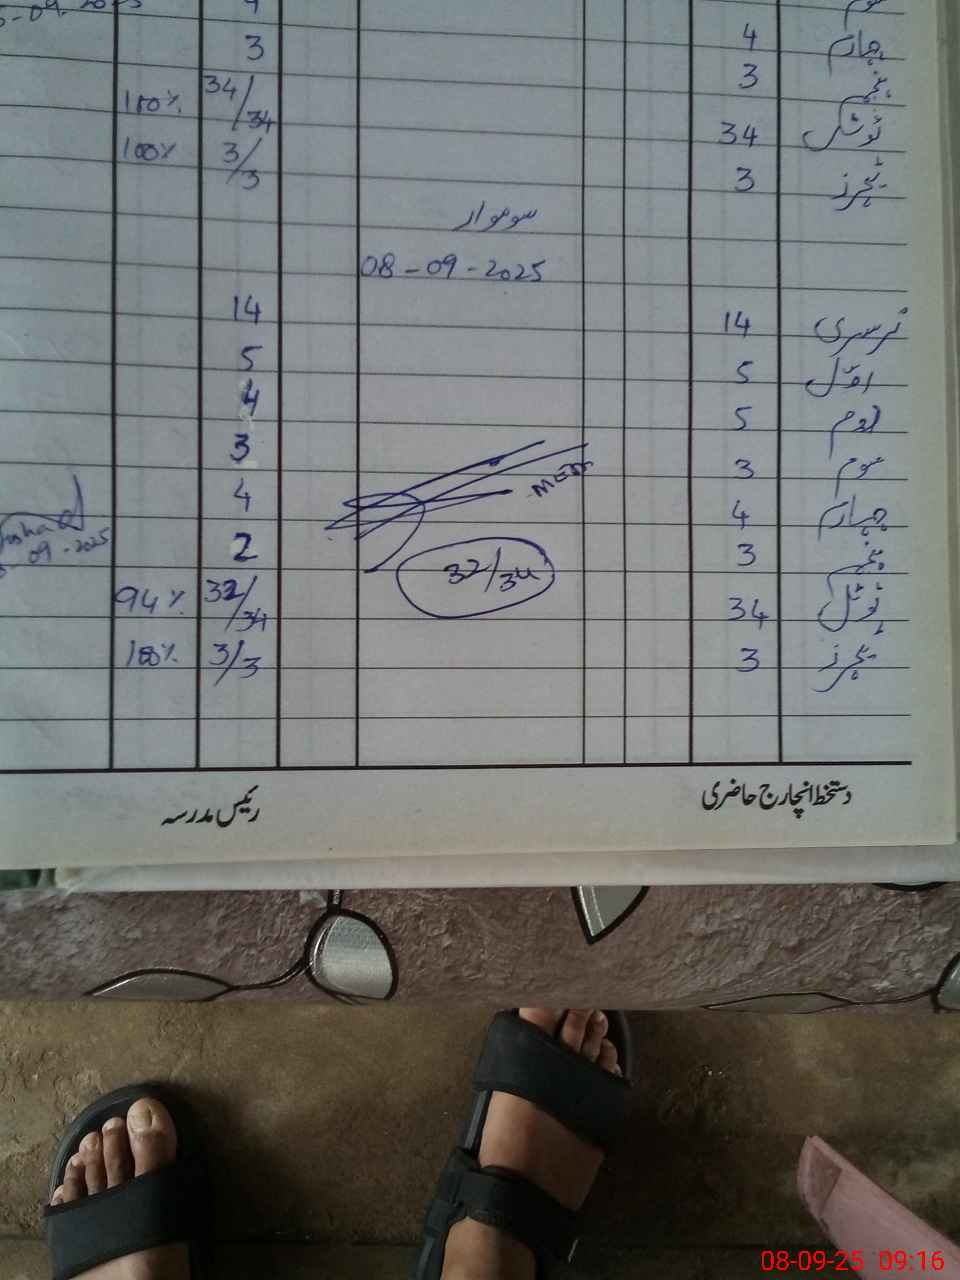 سوم 4
چہارم 4 3
پنجم 3
ٹوٹل 34 34/34 100%
ٹیچرز 3 3/3 100%
سوموار
08-09-2025
نرسری 14 14
اول 5 5
دوم 5 4
سوم 3 3
چہارم 4 4
پنجم 3 2
MEA
32/34
09-2025
ٹوٹل 34 32/34 94%
ٹیچرز 3 3/3 100%
دستخط انچارج حاضری رئیس مدرسہ
08-09-25 09:16